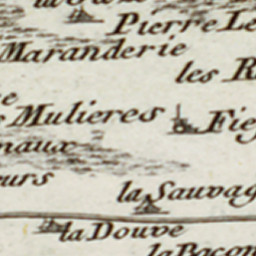 Pierre Le
Maranderie
les R
Mulieres
Fie
naux
eurs
la Sauvag
la Douve
la Bacon